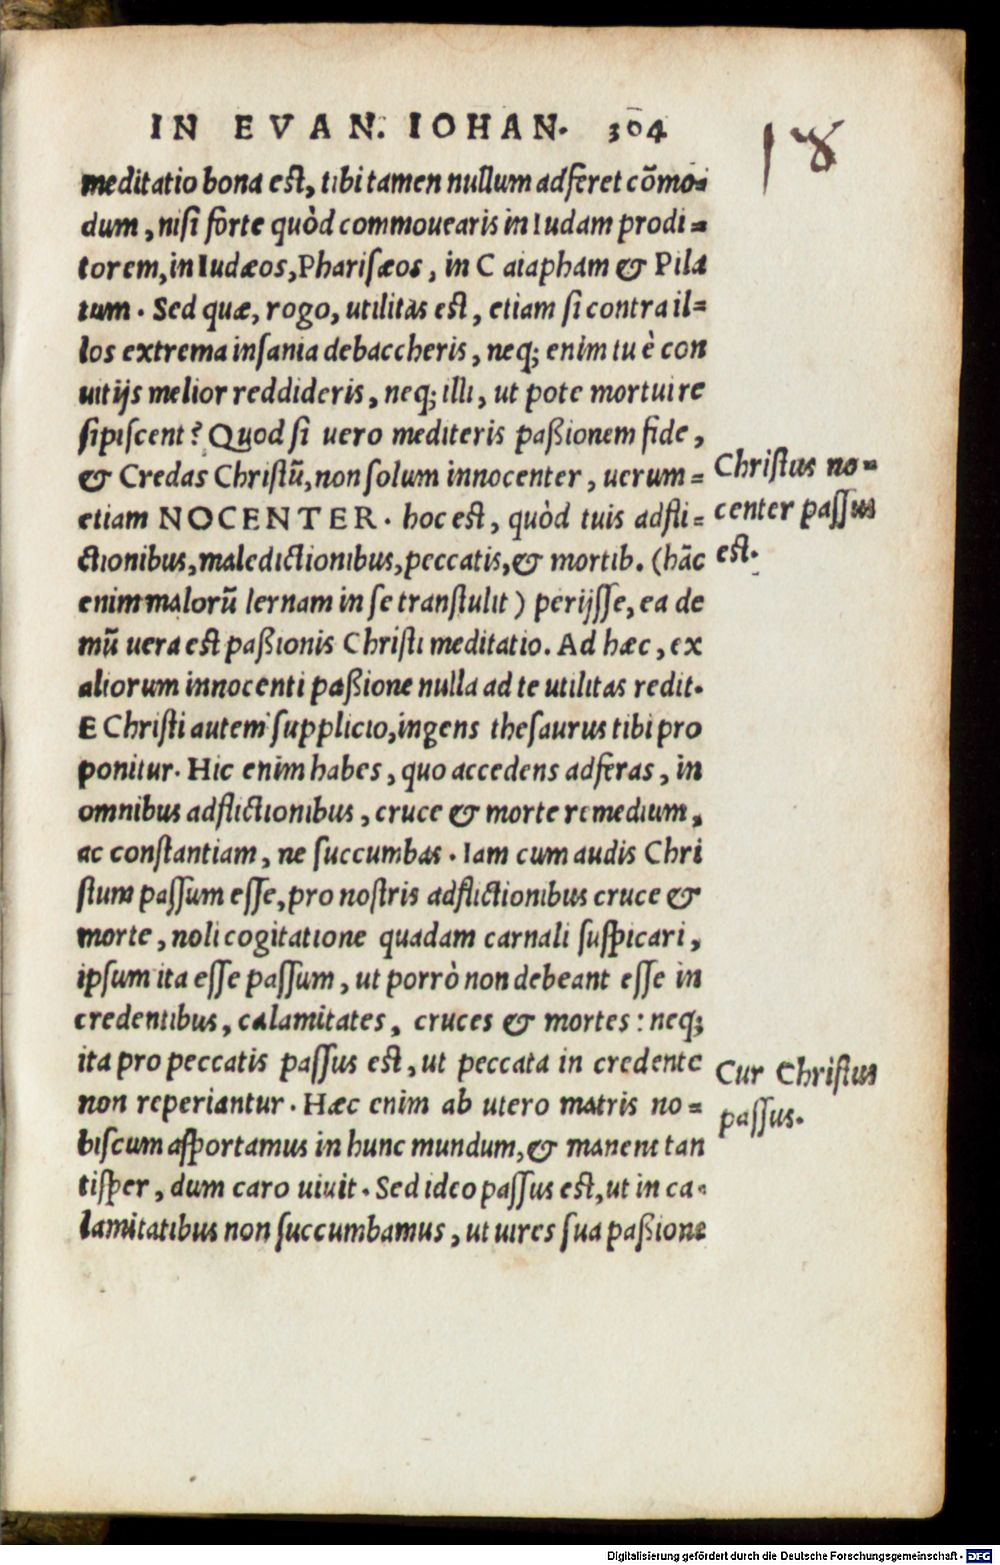 IN EVAN. IOHAN. 304
18
meditatio bona est, tibi tamen nullum adferet cõmo-
dum, nisi forte quòd commouearis in Iudam prodi=
torem, in Iudæos, Pharisæos, in Caiapham & Pila
tum. Sed quæ, rogo, utilitas est, etiam si contra il=
los extrema insania debaccheris, neq; enim tu è con
uitijs melior reddideris, neq; illi, ut pote mortui re
sipiscent? Quod si uero mediteris paßionem fide,
& Credas Christũ, non solum innocenter, uerum=
etiam NOCENTER. hoc est, quòd tuis adfli=
ctionibus, maledictionibus, peccatis, & mortib. (hãc
enim malorũ lernam in se transtulit) perijsse, ea de
mũ uera est paßionis Christi meditatio. Ad hæc, ex
aliorum innocenti paßione nulla ad te utilitas redit.
E Christi autem supplicio, ingens thesaurus tibi pro
ponitur. Hic enim habes, quo accedens adferas, in
omnibus adflictionibus, cruce & morte remedium,
ac constantiam, ne succumbas. Iam cum audis Chri
stum passum esse, pro nostris adflictionibus cruce &
morte, noli cogitatione quadam carnali suspicari,
ipsum ita esse passum, ut porrò non debeant esse in
credentibus, calamitates, cruces & mortes: neq;
ita pro peccatis passus est, ut peccata in credente
non reperiantur. Hæc enim ab utero matris no=
biscum asportamus in hunc mundum, & manent tan
tisper, dum caro uiuit. Sed ideo passus est, ut in ca-
lamitatibus non succumbamus, ut uires sua paßione
Christus no=
center passus
est.
Cur Christus
passus.
Digitalisierung gefördert durch die Deutsche Forschungsgemeinschaft - DFG